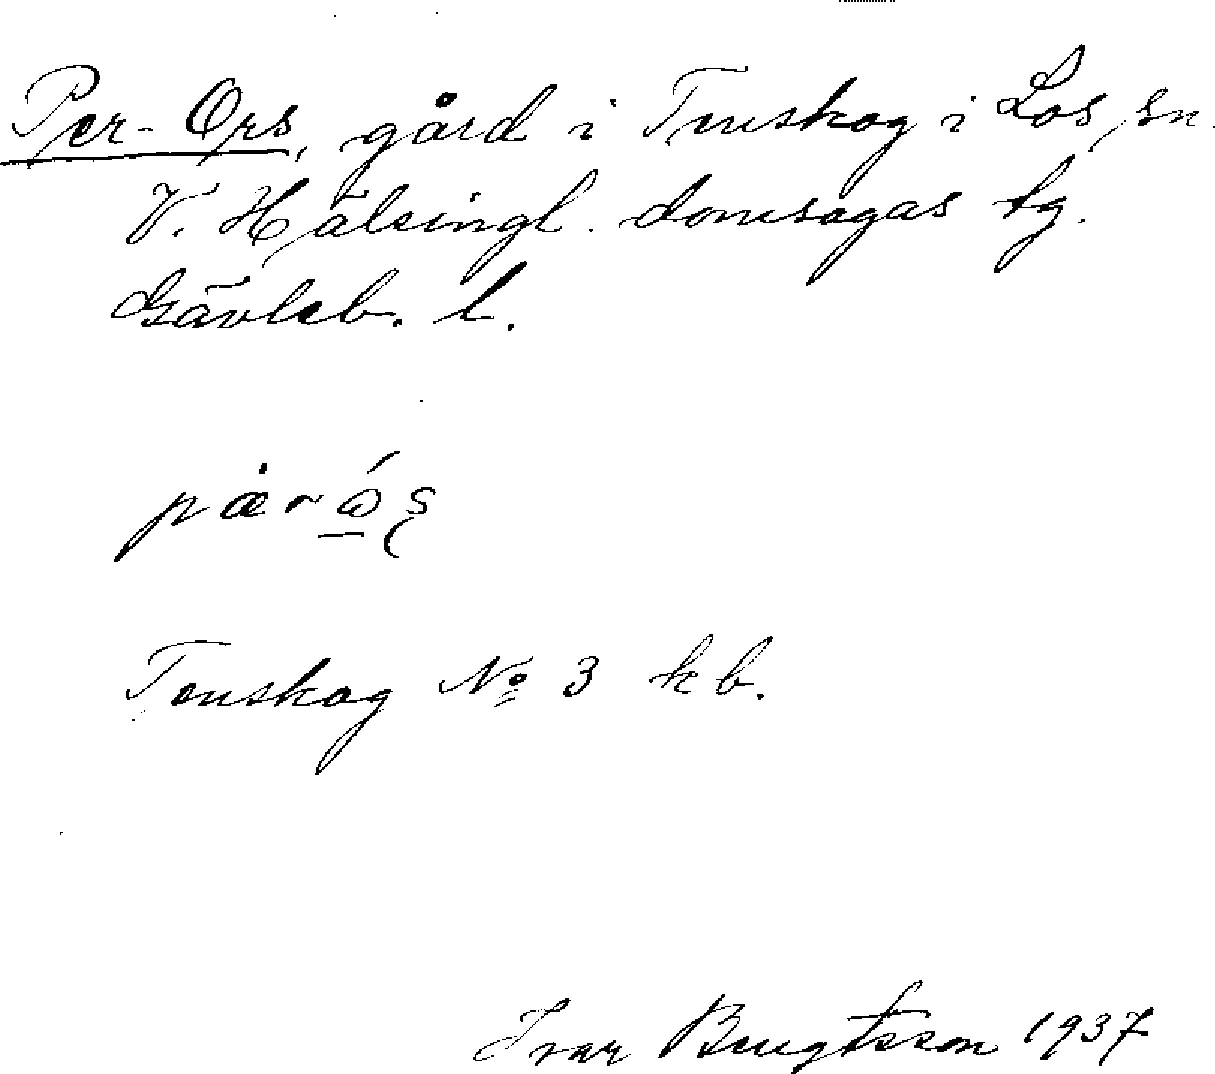 Per-Ors, gård i Tenskog i Los sn.
V. Hälsingl. domsagas tg.
Gävleb. l.
Tenskog No 3 kb.
Ivar Bengtsson 1937